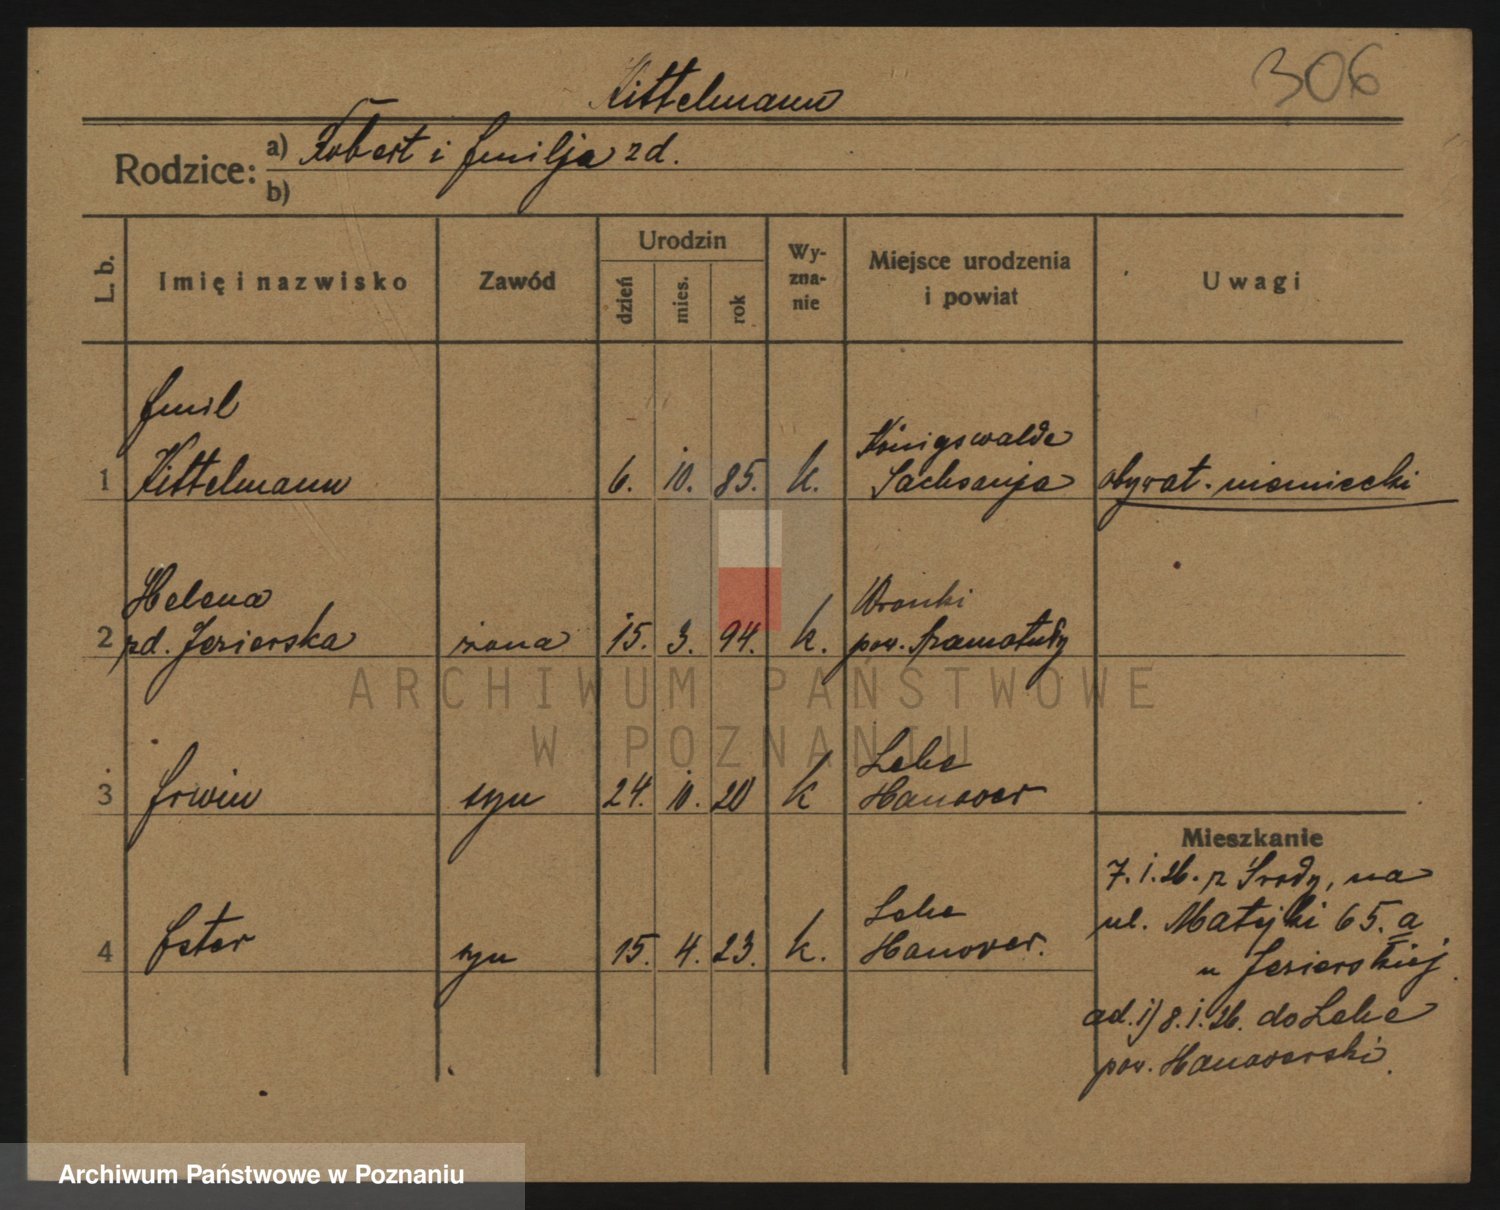 306
Kittelmann
Rodzice: a) Robert i Emilja zd.
b)
L. b.
Imię i nazwisko
Zawód
Urodzin
dzień
mies.
rok
Wy-
zna-
nie
Miejsce urodzenia
i powiat
Uwagi
Emil
Königswalde
1 Kittelmann 6. 10. 85. k. Sachsanja obywat. niemiecki
Helena Wronki
2 zd. Jezierska żona 15. 3. 94. k. pow. Szamotuły
Lehe
3 Erwin syn 24. 10. 20 k Hanower
Mieszkanie
7.1.26. z Środy, na
Lehe
ul. Matejki 65. a
4 Ester syn 15. 4. 23. k. Hanower.
u Jezierskiej.
ad. 1) 8.1.26. do Lehe
pow. Hanowerski.
ARCHIWUM PAŃSTWOWE
W POZNANIU
Archiwum Państwowe w Poznaniu